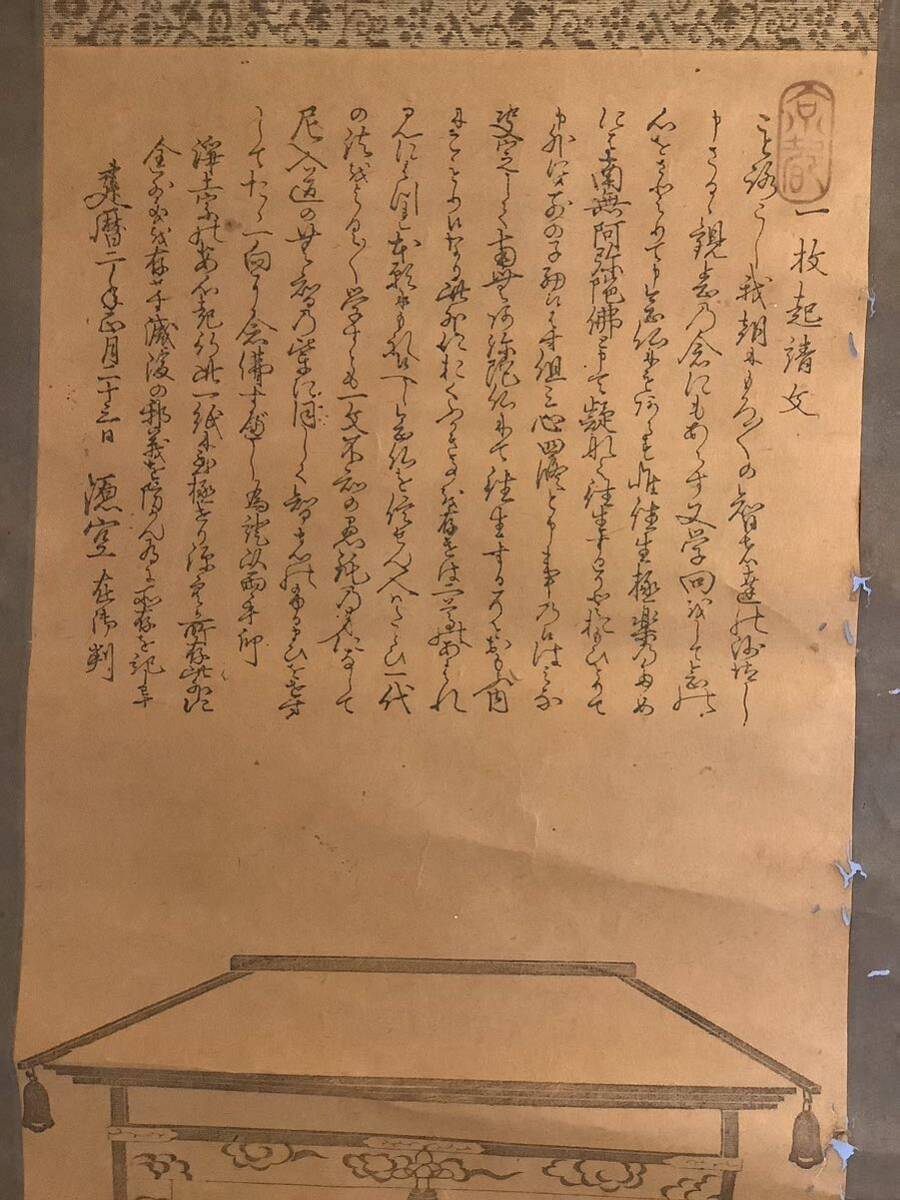 京都
一枚起請文
もろこし我朝にもろ〱の智者達の沙汰し
申さるゝ観念の念にもあらす又学問をして念の
心をさとりて申念仏にもあらす唯往生極楽のため
には南無阿弥陀佛と申て疑なく往生するそと思ひとりて
申外には別の子細候はす但三心四修と申事の候はみな
決定して南無阿弥陀仏にて往生するそとおもふ内
にこもり候なり此外におくふかき事を存せは二尊のあはれ
みにはつれ本願にもれ候へし念仏を信せん人はたとひ一代
の法をよく〱学すとも一文不知の愚鈍の身になして
尼入道の無智の輩に同しくして智者のふるまひをせす
してたゝ一向に念佛すへし為證以両手印
浄土宗の安心起行此一紙に至極せり源空か所存此外に
全別義を存せす滅後の邪義を防んか為に所存を記畢
建暦二年正月二十三日 源空 在御判